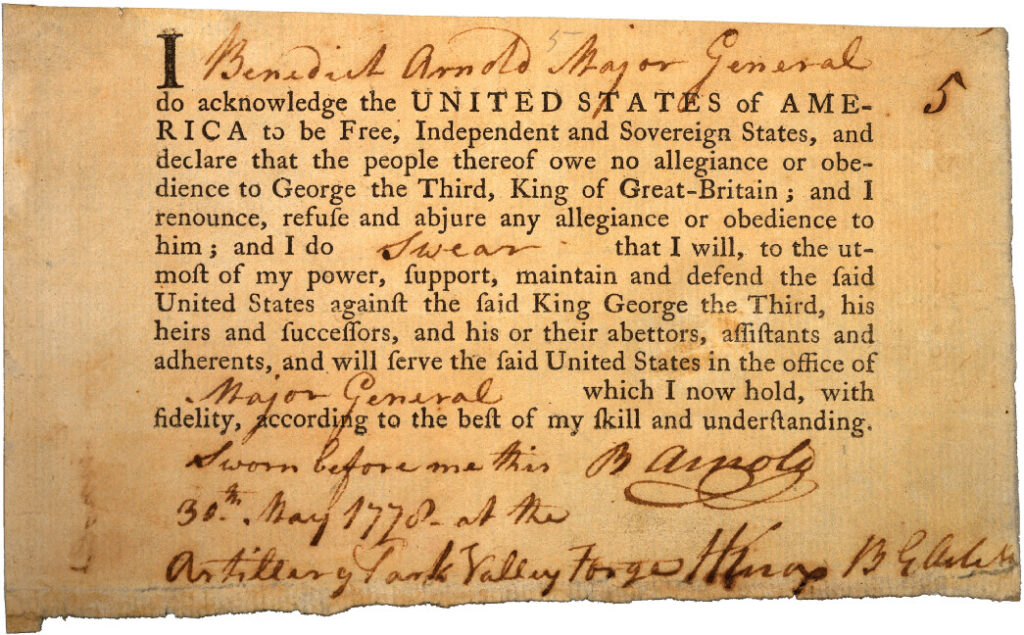 I Benedict Arnold Major General
5
do acknowledge the UNITED STATES of AME-
5
RICA to be Free, Independent and Sovereign States, and
declare that the people thereof owe no allegiance or obe-
dience to George the Third, King of Great-Britain ; and I
renounce, refuſe and abjure any allegiance or obedience to
him ; and I do Swear that I will, to the ut-
moſt of my power, ſupport, maintain and defend the ſaid
United States againſt the ſaid King George the Third, his
heirs and ſucceſſors, and his or their abettors, aſſiſtants and
adherents, and will ſerve the ſaid United States in the office of
Major General which I now hold, with
fidelity, according to the beſt of my ſkill and underſtanding.
Sworn before me this B Arnold
30th May 1778 at the
Artillery Park Valley Forge HKnox B G